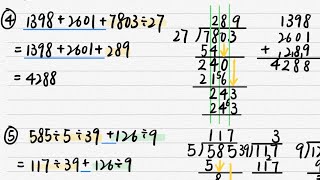 ④ 1398+2601+7803÷27
=1398+2601+289
=4288
289
27 7803
54
240
216
243
243
1398
2601
+ 289
4288
⑤ 585÷5÷39+126÷9
=117÷39+126÷9
117
5 585
5
3
39 117
9